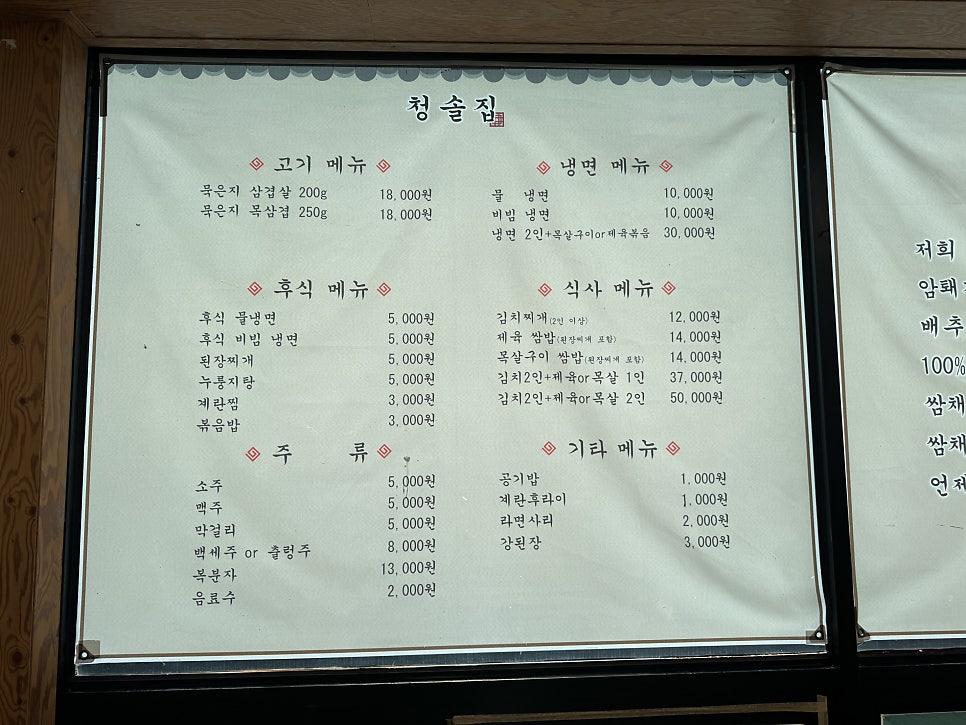 청솔집
고기 메뉴
묵은지 삼겹살 200g 18,000원
묵은지 목삼겹 250g 18,000원
냉면 메뉴
물 냉면 10,000원
비빔 냉면 10,000원
냉면 2인+목살구이or제육볶음 30,000원
후식 메뉴
후식 물냉면 5,000원
후식 비빔 냉면 5,000원
된장찌개 5,000원
누룽지탕 5,000원
계란찜 3,000원
볶음밥 3,000원
식사 메뉴
김치찌개(2인 이상) 12,000원
제육 쌈밥(된장찌개 포함) 14,000원
목살구이 쌈밥(된장찌개 포함) 14,000원
김치2인+제육or목살 1인 37,000원
김치2인+제육or목살 2인 50,000원
주 류
소주 5,000원
맥주 5,000원
막걸리 5,000원
백세주 or 츨렁주 8,000원
복분자 13,000원
음료수 2,000원
기타 메뉴
공기밥 1,000원
계란후라이 1,000원
라면사리 2,000원
강된장 3,000원
저희
암퇘
배추
100%
쌈채
쌈채
언제